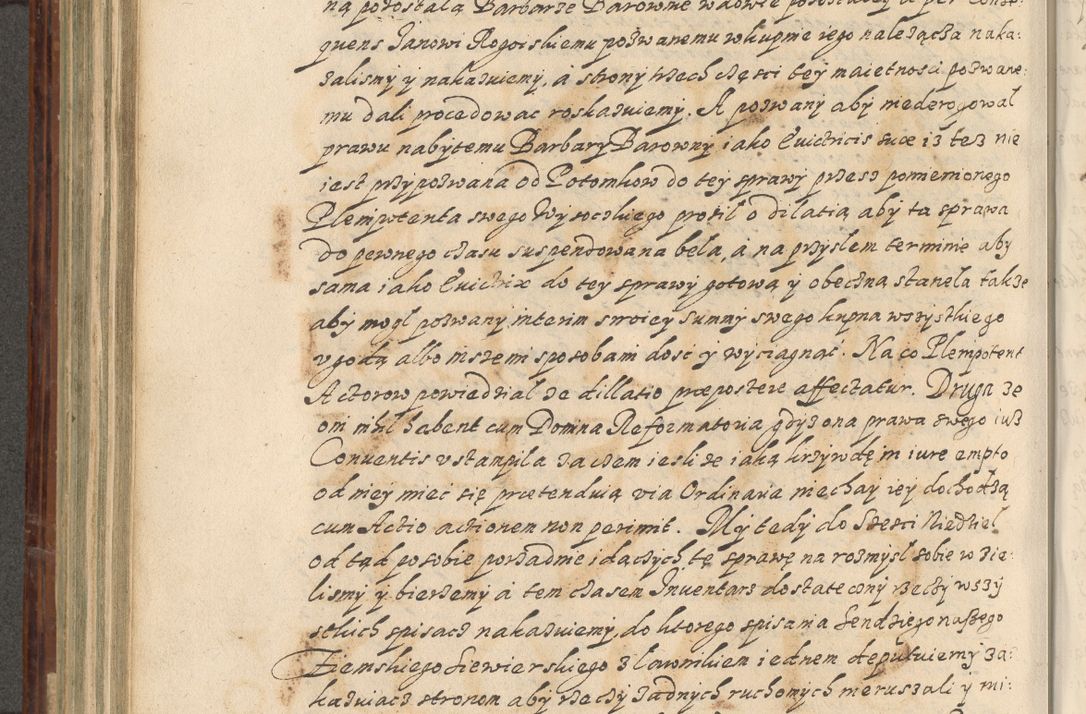 ną pozostałą Barbarze Barownie wdowie pozostałey a per Conse:
quens Janowi Rogoiskiemu pozwanemu wkupnie iego należącza naka:
zalismy y nakazuiemy, a strony trzech części tey maietnosci pozwane:
mu dali procedowac roskazuiemy. A pozwany aby niederogował
prawu nabytemu Barbary Barowny iako Evictricis suæ iż tesz nie
iest przypozwana od Potomkow do tey sprawy przesz pomienionego
Plempotenta swego Wysockiego prosił o dilatią aby ta sprawa
do pewnego czasu suspendowana bela, a na przyslem terminie aby
sama iako Evictrix do tey sprawy gotową y obeczną stanela także
aby mogl pozwany interim swoiey summy swego kupna wszystkiego
vgodą albo inszemi sposobami dosc y wyciągnać. Na co Plempotent
Actorow powiedział że dillatio præpostere affectatur. Druga że
oni nihil habent cum Domna Reformatoria gdysz ona prawa swego iusz
Conventis vstampila zaczem iesli że iaką krzywdę in iure empto
od niey mieć się prætenduią via Ordinaria niechay iey dochodzą
cum Actio actionem non perimit. My tedy do Szesci Niedziel
od tąd po sobie porządnie idaczych tę sprawę na rozmysl sobie wzie:
lismy y bierzemy a tem czasem Inventarz dostateczny rzeczy wszy
stkich spisacz nakazuiemy, do ktorego spisania Sendziego naszego
Ziemskiego Siewierskiego z lawnikiem iednem deputuiemy za:
kazuiacz stronom aby rzeczy żadnych ruchomych nieruszali y ni: